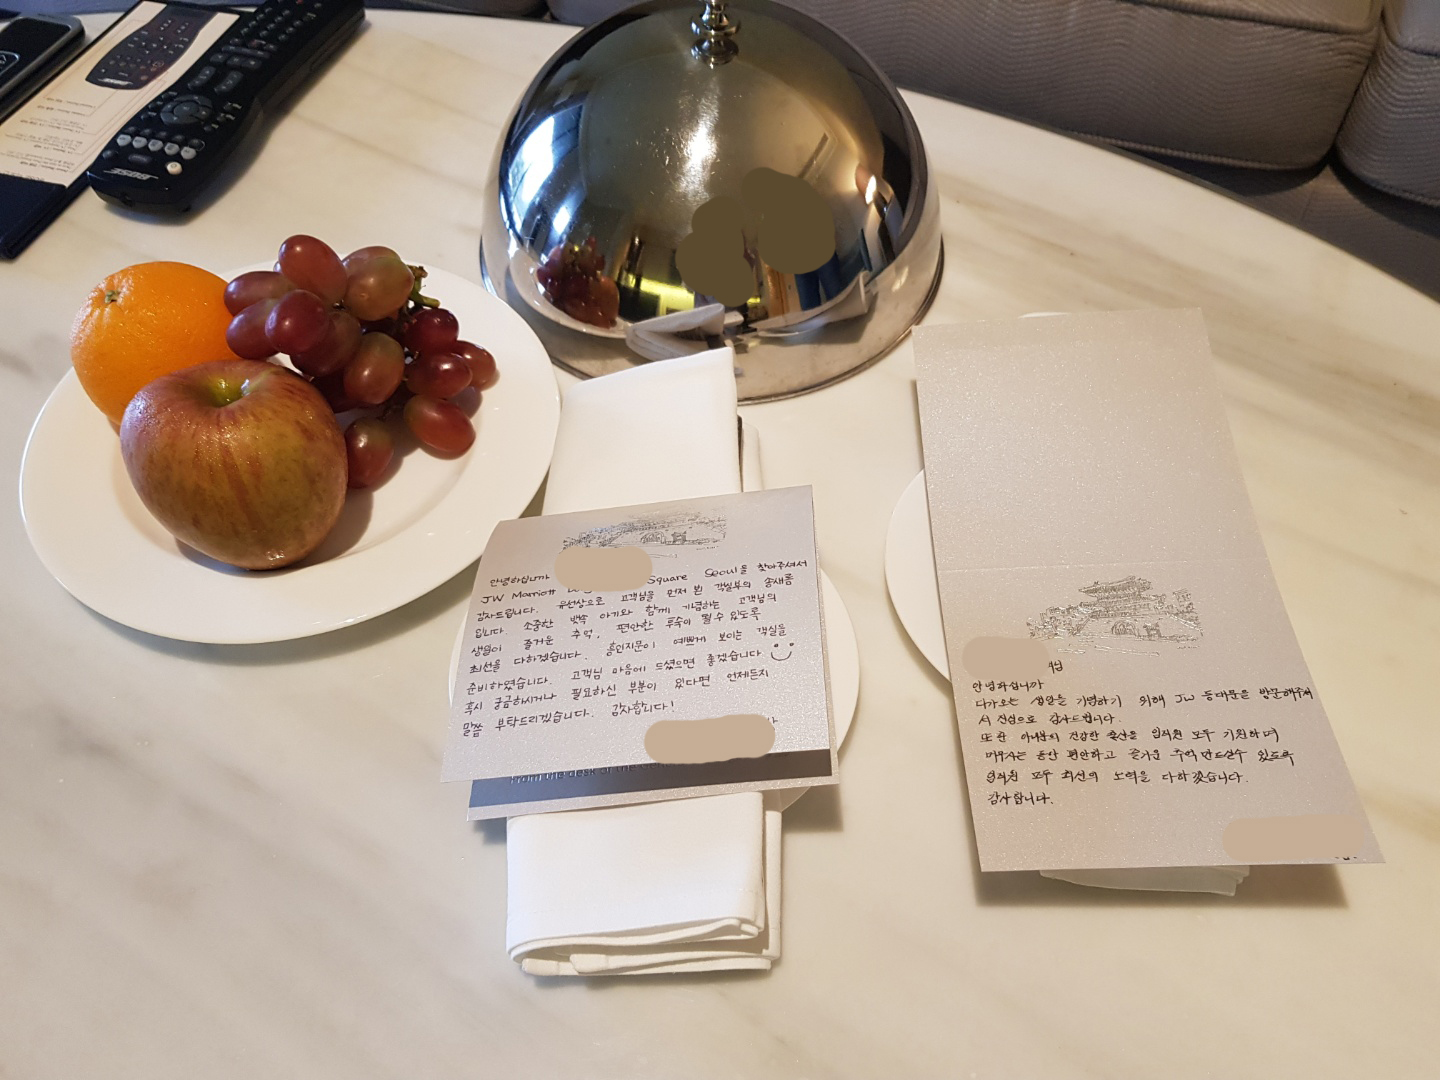 BOSE
안녕하십니까
JW Marriott Square Seoul을 찾아주셔서
감사드립니다. 유선상으로 고객님을 먼저 뵌 객실부의 송새롬
입니다. 소중한 뱃속 아기와 함께 기념하는 고객님의
생일이 즐거운 추억, 편안한 투숙이 될 수 있도록
최선을 다하겠습니다. 흥인지문이 예쁘게 보이는 객실을
준비하였습니다. 고객님 마음에 드셨으면 좋겠습니다
혹시 궁금하시거나 필요하신 부분이 있다면 언제든지
말씀 부탁드리겠습니다. 감사합니다!
From the desk of the
님
안녕하십니까
다가오는 생일을 기념하기 위해 JW 동대문을 방문해주셔
서 진심으로 감사드립니다.
또한 아내분의 건강한 출산을 임직원 모두 기원하며
머무시는 동안 편안하고 즐거운 추억 만드실수 있도록
임직원 모두 최선의 노력을 다하겠습니다.
감사합니다.